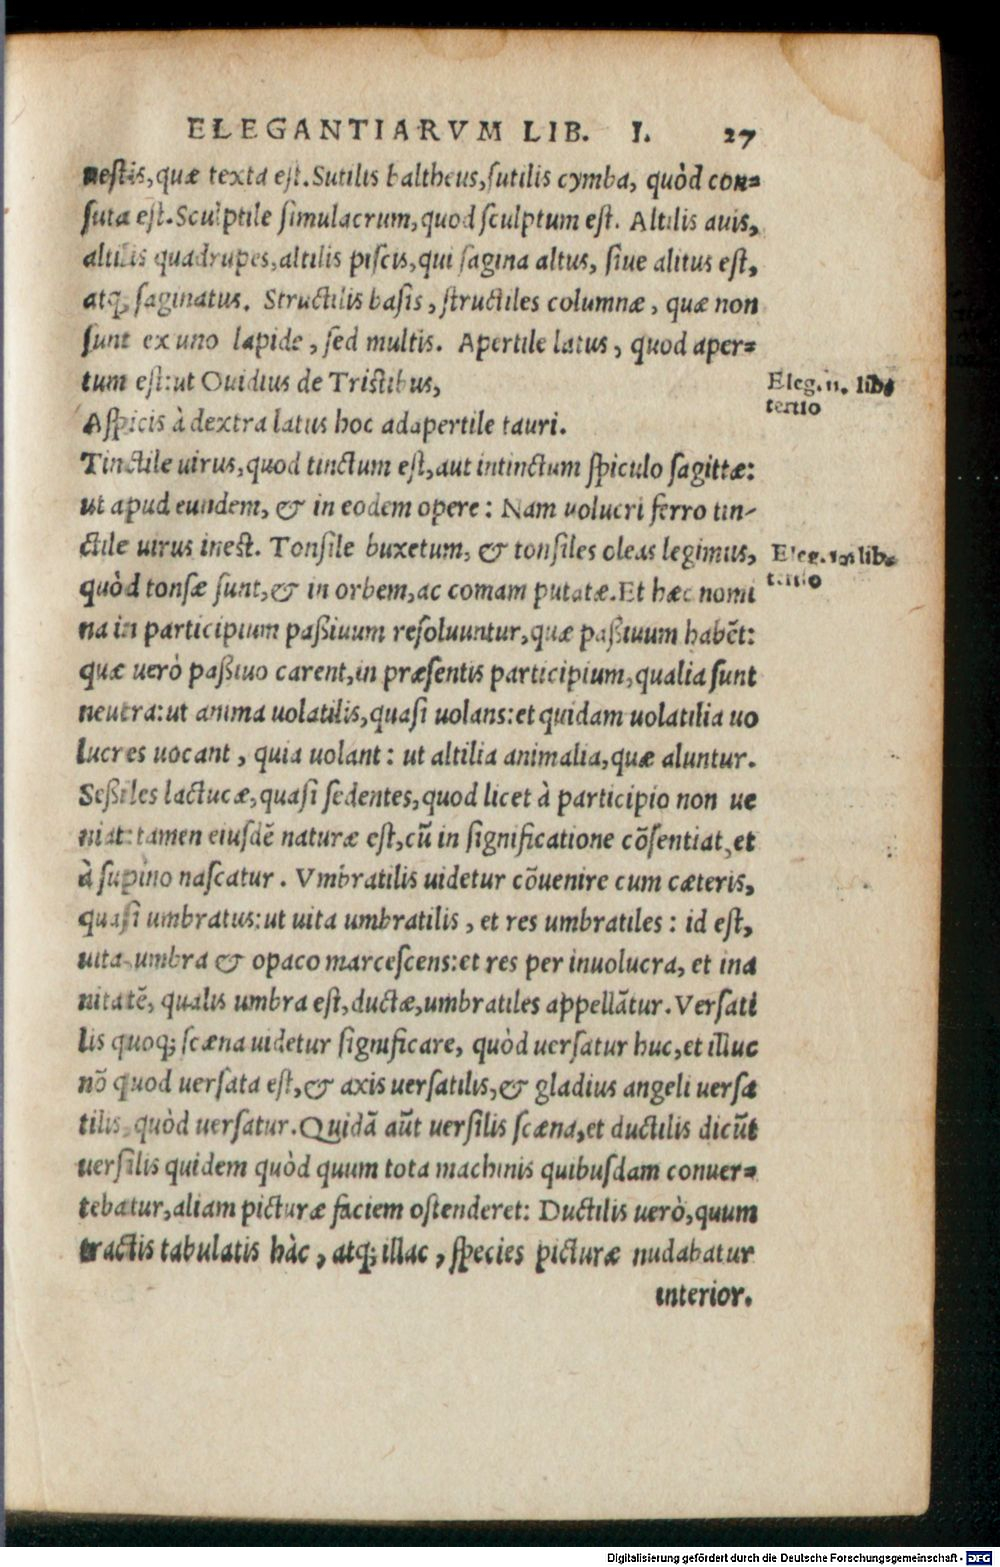 ELEGANTIARVM LIB. I. 27
uestis, quæ texta est. Sutilis baltheus, sutilis cymba, quòd con=
suta est. Sculptile simulacrum, quod sculptum est. Altilis auis,
altilis quadrupes, altilis piscis, qui sagina altus, siue alitus est,
atq; saginatus. Structilis basis, structiles columnæ, quæ non
sunt ex uno lapide, sed multis. Apertile latus, quod aper=
tum est: ut Ouidius de Tristibus,
Eleg. 11. lib.
tertio
Aspicis à dextra latus hoc adapertile tauri.
Tinctile uirus, quod tinctum est, aut intinctum spiculo sagittæ:
ut apud eundem, & in eodem opere: Nam uolucri ferro tin-
ctile uirus inest. Tonsile buxetum, & tonsiles oleas legimus,
Eleg. lib.
tertio
quòd tonsæ sunt, & in orbem, ac comam putatæ. Et hæc nomi
na in participium paßiuum resoluuntur, quæ paßiuum habēt:
quæ uerò paßiuo carent, in præsentis participium, qualia sunt
neutra: ut anima uolatilis, quasi uolans: et quidam uolatilia uo
lucres uocant, quia uolant: ut altilia animalia, quæ aluntur.
Seßiles lactucæ, quasi sedentes, quod licet à participio non ue
niat: tamen eiusdē naturæ est, cū in significatione cōsentiat, et
à supino nascatur. Vmbratilis uidetur cōuenire cum cæteris,
quasi umbratus: ut uita umbratilis, et res umbratiles: id est,
uita umbra & opaco marcescens: et res per inuolucra, et ina
nitatē, qualis umbra est, ductæ, umbratiles appellātur. Versati
lis quoq; scæna uidetur significare, quòd uersatur huc, et illuc
nō quod uersata est, & axis uersatilis, & gladius angeli uersa
tilis, quòd uersatur. Quidā aūt uersilis scæna, et ductilis dicūt
uersilis quidem quòd quum tota machinis quibusdam conuer=
tebatur, aliam picturæ faciem ostenderet: Ductilis uerò, quum
tractis tabulatis hàc, atq; illac, species picturæ nudabatur
interior.
Digitalisierung gefördert durch die Deutsche Forschungsgemeinschaft - DFG